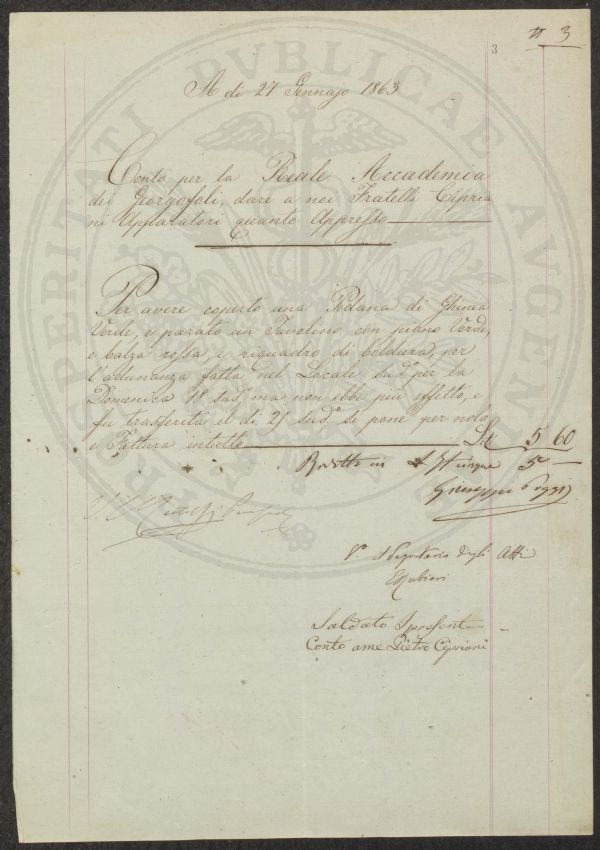 n 3
3
A di 27 Gennajo 1863
Conto per la Reale Accademia
dei Georgofoli, dare a noi Fratelli Cipria
ni Apparatori quanto Appresso
Per avere coperto una Pedana di Ghinea
Verde, e parato un Tavolino con piano Verde,
e balza rossa, e riquadro di bordura, per
l'adunanza fatta nel Locale sud.º per la
Domenica 18 sud.º ma non ebbe più effetto, e
fu trasferita il di 25 sud.º si pone per nolo
e Fattura intutto Lit 5 60
Ridotto in Lit Cinque 5 —
Giuseppe Poggi
V.º Il Segretario degli Atti
E Rubieri
Saldato Il presente
Conto a me Pietro Cipriani
PROSPERITATI PUBLICAE AUGENDAE